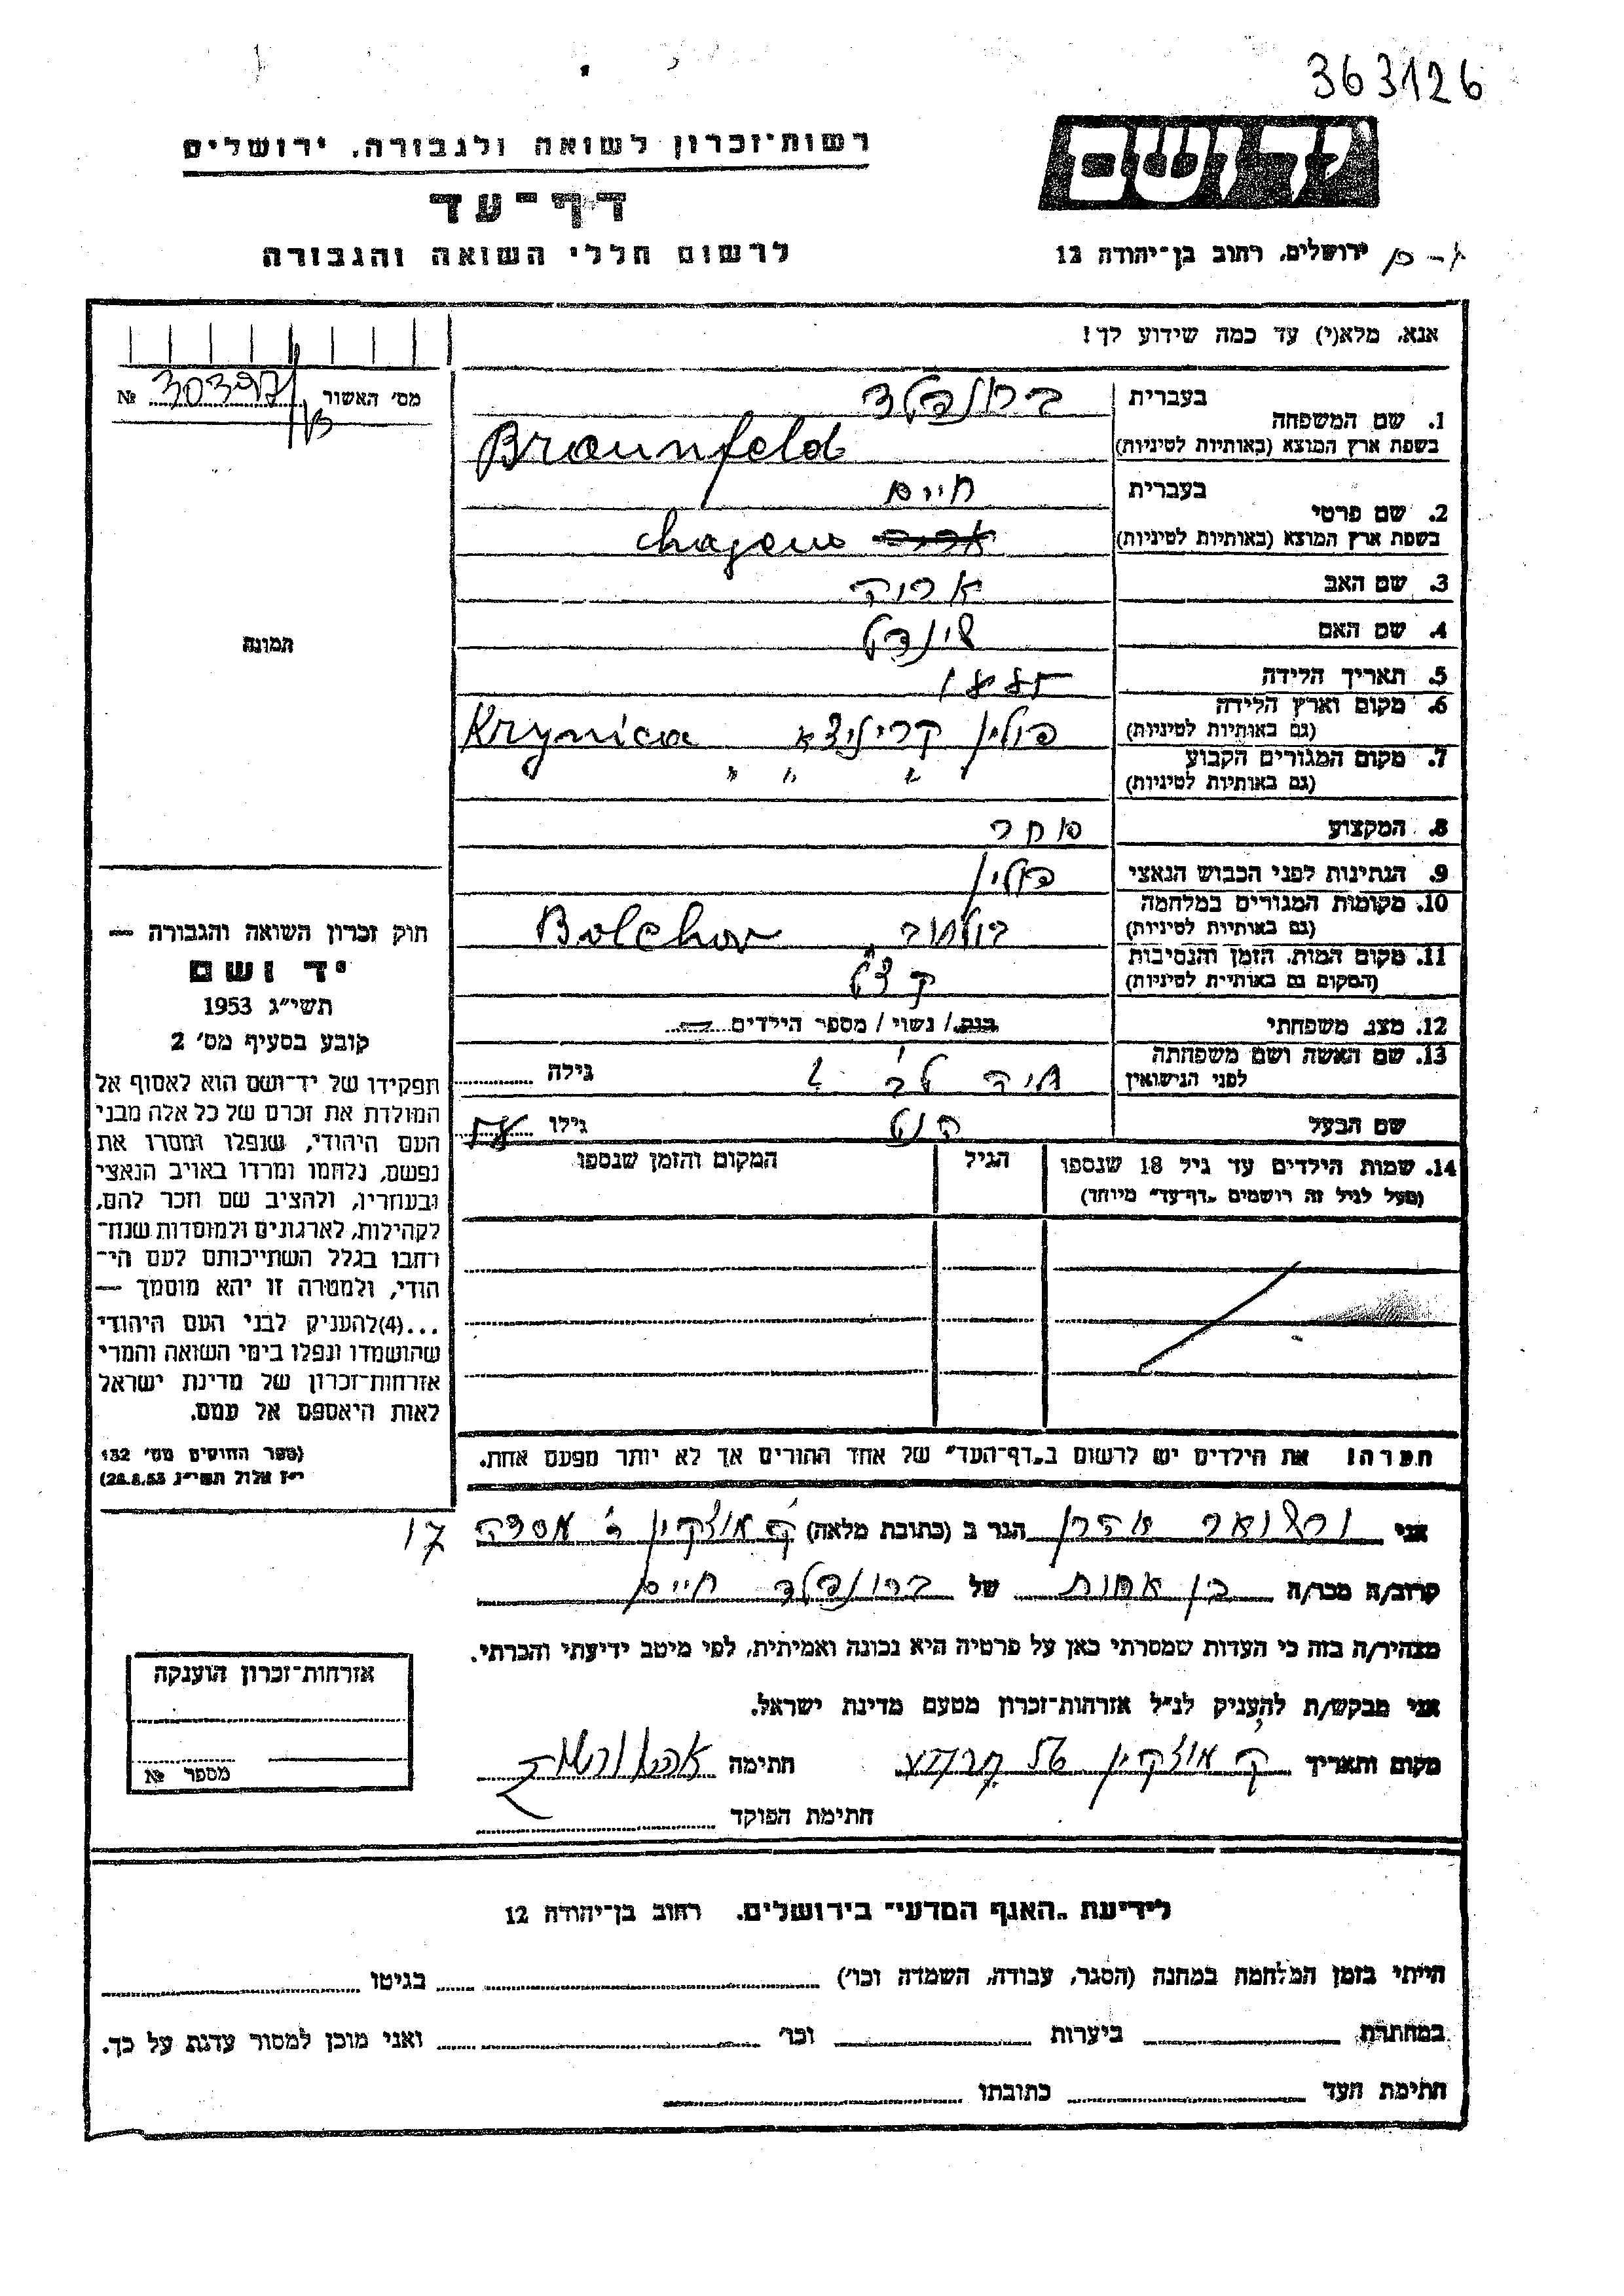 363126
רשות־זכרון לשואה ולגבורה, ירושלים
ידושם
דף־עד
לרשום חללי השואה והגבורה
ירושלים, רחוב בן־יהודה 12
אנא, מלא(י) עד כמה שידוע לך!
מס' האשור № 30397
1. שם המשפחה
בעברית ברונפלד
בשפת ארץ המוצא (באותיות לטיניות) Braunfeld
2. שם פרטי
בעברית חיים
בשפת ארץ המוצא (באותיות לטיניות) Chajem
3. שם האב
4. שם האם שינדל
5. תאריך הלידה
6. מקום וארץ הלידה
(גם באותיות לטיניות) פולין קריניצא Krynica
7. מקום המגורים הקבוע
(גם באותיות לטיניות) " " " "
8. המקצוע סוחר
9. הנתינות לפני הכבוש הנאצי פולין
10. מקומות המגורים במלחמה
(גם באותיות לטיניות) בולחוב Bolchov
11. מקום המות, הזמן והנסיבות
(המקום גם באותיות לטיניות)
12. מצב משפחתי רווק / נשוי / מספר הילדים
13. שם האשה ושם משפחתה
לפני הנישואין גילה
שם הבעל גילו
14. שמות הילדים עד גיל 18 שנספו
(מעל לגיל זה רושמים "דף־עד" מיוחד)
הגיל
המקום והזמן שנספו
הערה! את הילדים יש לרשום ב"דף־העד" של אחד ההורים אך לא יותר מפעם אחת.
תמונה
חוק זכרון השואה והגבורה —
יד ושם
תשי"ג 1953
קובע בסעיף מס' 2
תפקידו של יד־ושם הוא לאסוף אל
המולדת את זכרם של כל אלה מבני
העם היהודי, שנפלו ומסרו את
נפשם, נלחמו ומרדו באויב הנאצי
ובעוזריו, ולהציב שם וזכר להם,
לקהילות, לארגונים ולמוסדות שנח־
רחבו בגלל השתייכותם לעם הי־
הודי, ולמטרה זו יהא מוסמך —
...(4)להעניק לבני העם היהודי
שהושמדו ונפלו בימי השואה והמרי
אזרחות־זכרון של מדינת ישראל
לאות היאספם אל עמם.
(ספר החוקים מס' 132
י"ז אלול תשי"ג 28.8.53)
אני אהרן הגר ב (כתובת מלאה) ק. מוצקין ר' מסדה 17
קרוב/ה מכר/ה בן אחות של ברונפלד חיים
מצהיר/ה בזה כי העדות שמסרתי כאן על פרטיה היא נכונה ואמיתית, לפי מיטב ידיעתי והכרתי.
אני מבקש/ת להעניק לנ"ל אזרחות־זכרון מטעם מדינת ישראל.
מקום ותאריך ק. מוצקין חתימה
חתימת הפוקד
אזרחות־זכרון הוענקה
מספר №
לידיעת "האגף המדעי" בירושלים, רחוב בן־יהודה 12
הייתי בזמן המלחמה במחנה (הסגר, עבודה, השמדה וכו') בגיטו
במחתרת ביערות וכו' ואני מוכן למסור עדות על כך.
חתימת העד כתובתו